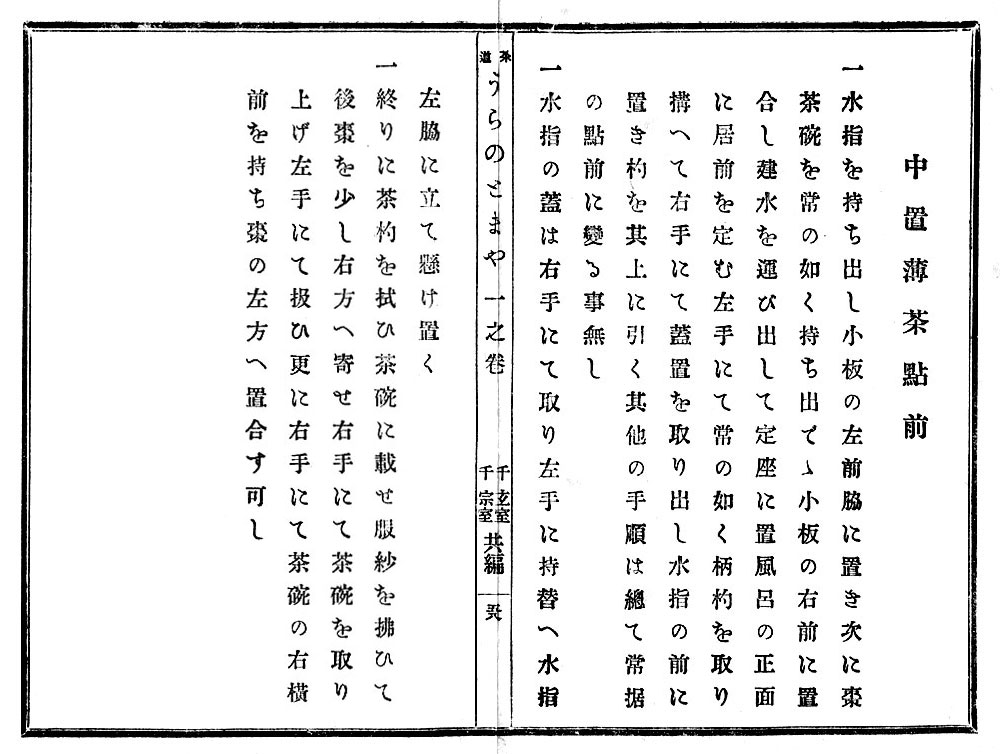 中置薄茶點前
一水指を持ち出し小板の左前脇に置き次に棗
茶碗を常の如く持ち出でゝ小板の右前に置
合し建水を運び出して定座に置風呂の正面
に居前を定む左手にて常の如く柄杓を取り
搆へて右手にて蓋置を取り出し水指の前に
置き杓を其上に引く其他の手順は總て常据
の點前に變る事無し
一水指の蓋は右手にて取り左手に持替へ水指
茶道
うらのとまや 一之卷
千玄室
千宗室
共編
左脇に立て懸け置く
一終りに茶杓を拭ひ茶碗に載せ服紗を拂ひて
後棗を少し右方へ寄せ右手にて茶碗を取り
上げ左手にて扱ひ更に右手にて茶碗の右橫
前を持ち棗の左方へ置合す可し